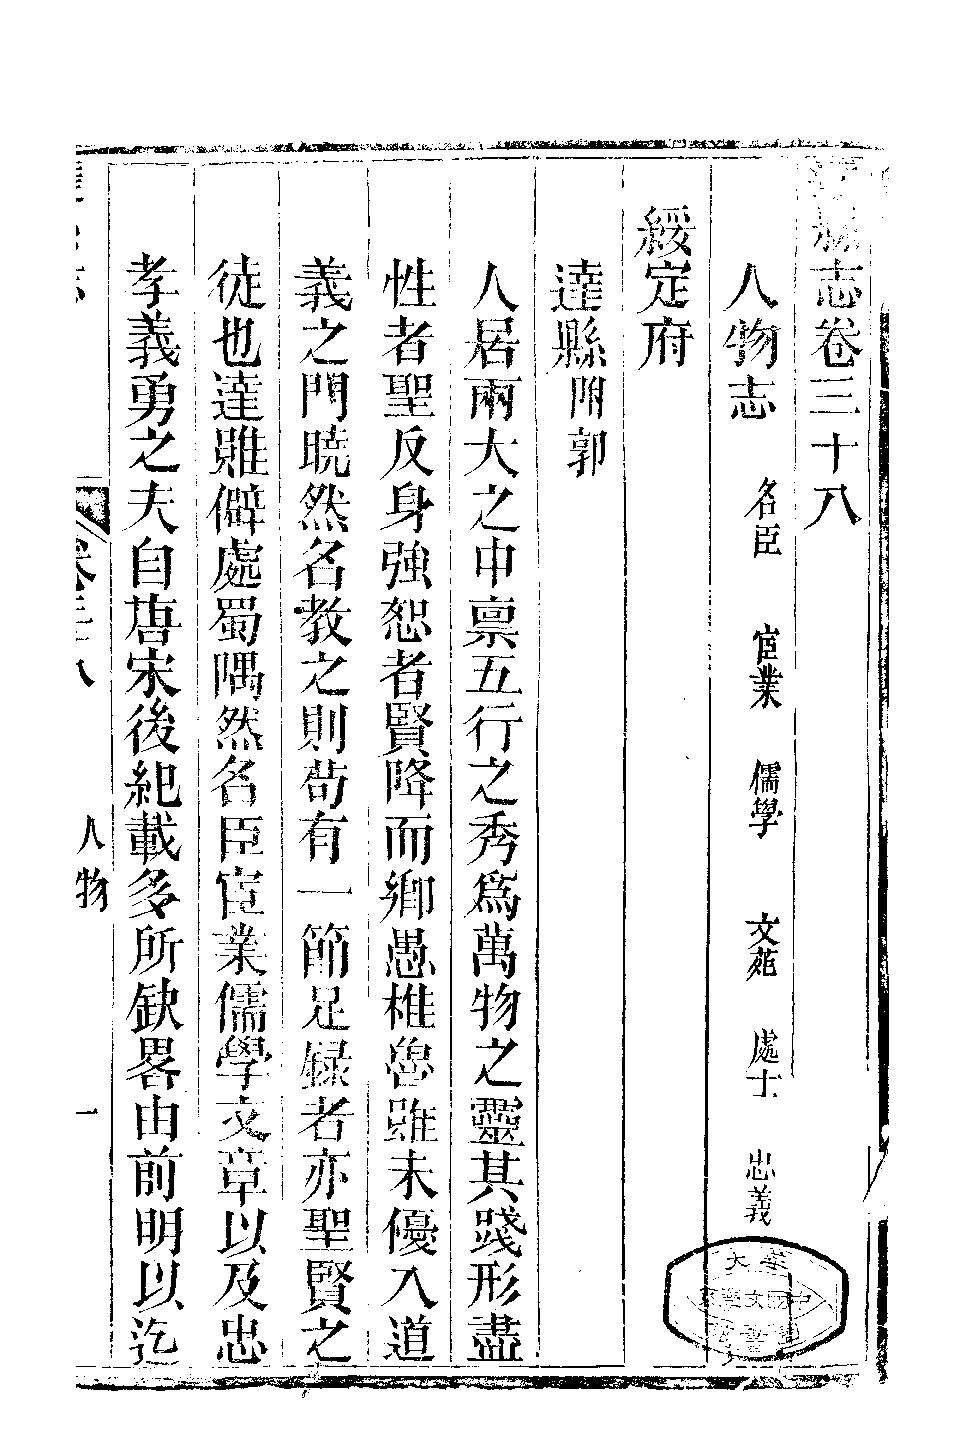 縣志卷三十八
人物志 名臣 宦業 儒學 文苑 處士 忠義
綏定府
達縣附郭
人居兩大之中禀五行之秀爲萬物之靈其踐形盡
性者聖反身強恕者賢降而鄉愚椎魯雖未優入道
義之門曉然名教之則苟有一節足録者亦聖賢之
徒也達雖僻處蜀隅然名臣宦業儒學文章以及忠
孝義勇之夫自唐宋後紀載多所缺畧由前明以迄
志 卷三十八 人物 一